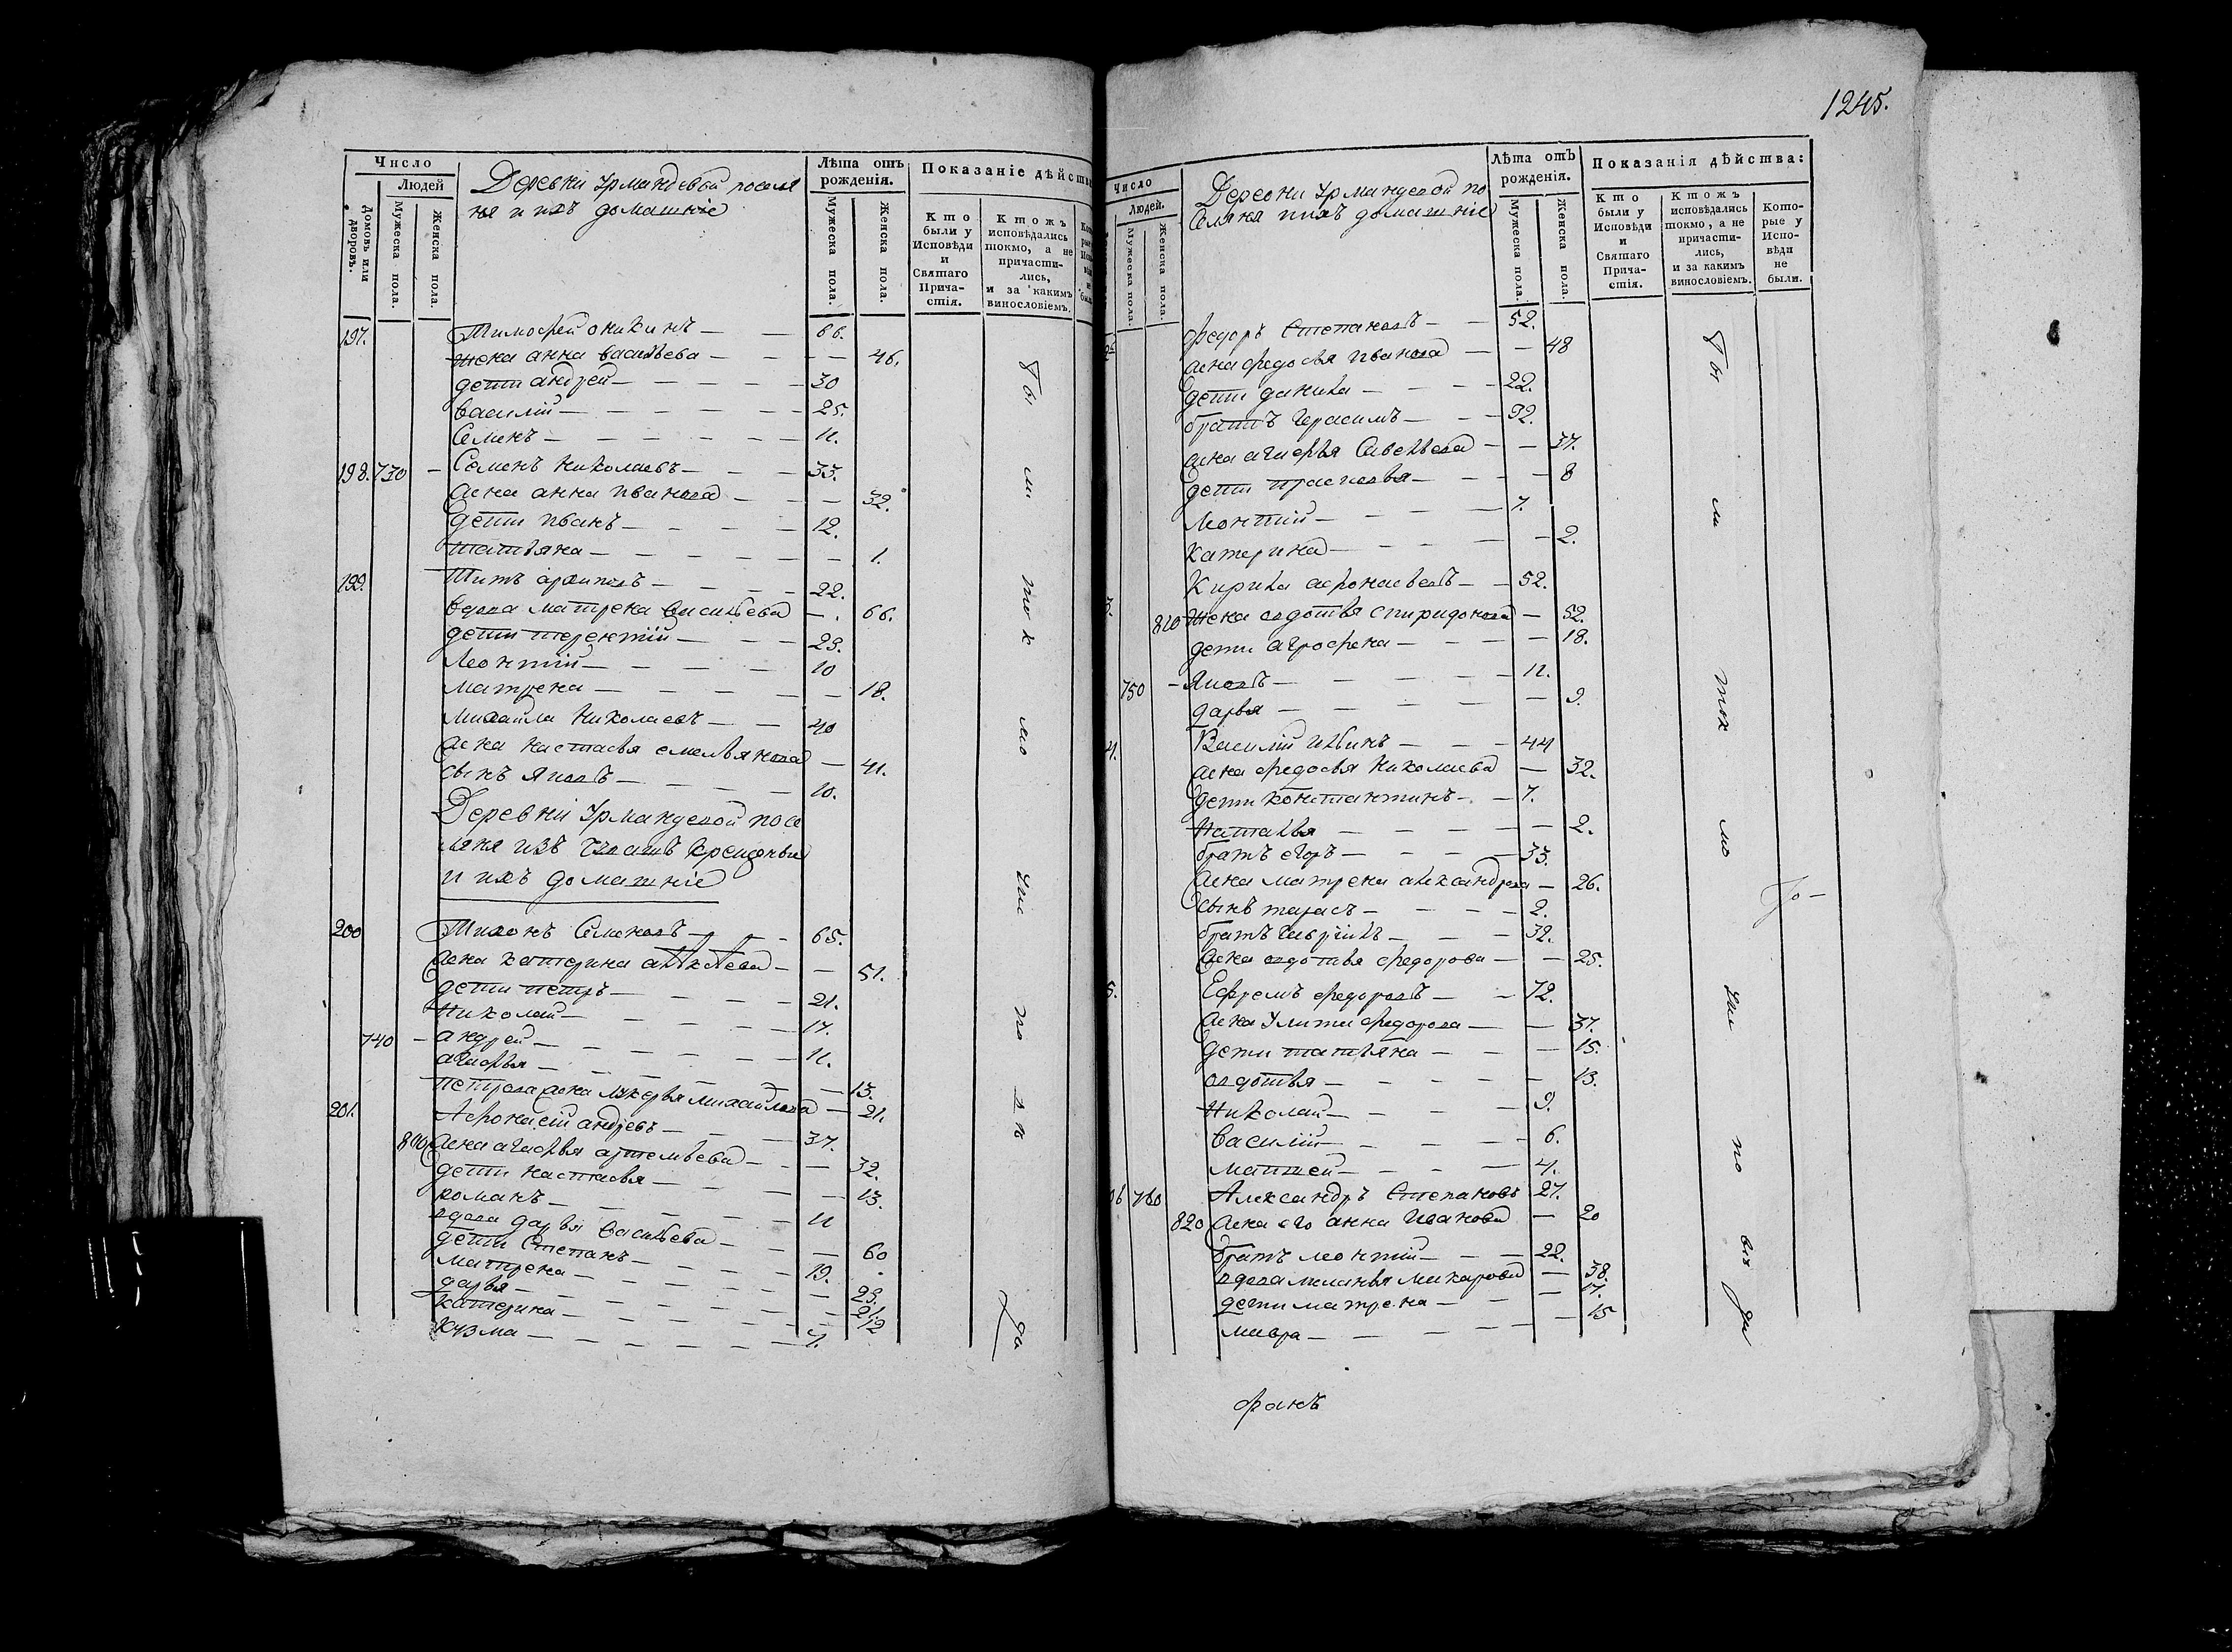 Число
Людей
Домовъ или дворовъ.
Мужеска пола.
Женска пола.
Деревни Урмандевой поселя
ня и ихъ домашніе
Лѣта отъ рожденія.
Мужеска пола.
Женска пола.
Показаніе дѣйства
Кто были у Исповѣди и Святаго Причастія.
Ктожъ исповѣдались токмо, а не причастились, и за какимъ винословіемъ.
197. Тимофей оникинъ — — 66.
жена анна васильева — — — 46.
дети андрей — — — 30
василій — — — 25.
Семенъ — — — 11.
198. 730 — Семенъ Николаевъ — — 33.
жена анна иванова — — — 32.
дети иванъ — — — 12.
татьяна — — — 1.
199. Титъ архиповъ — — — 22.
вдова матрена васильева — 66.
дети терентій — — — 23.
Леонтій — — — 10
матрена — — — 18.
михайла Николаевъ — — 40
жена настасья емельянова — 41.
сынъ яковъ — — — 10.
Деревни Урмандевой посе
ляня изъ чувашъ крещеныя
и ихъ домашніе
200 Тихонъ Семеновъ — — 65.
жена катерина алексѣева — — 51.
дети петръ — — — 21.
Николай — — — 17.
740 — андрей — — — 11.
агафья — — — 13.
петрова жена лукерья михайлова — 21.
201. Афонасій андреевъ — — — 37.
800 жена агафья артемьева — — 32.
дети настасья — — — 13.
романъ — — — 11
вдова дарья васильева — — 60
дети Степанъ — — — 19.
матрена — — — 23.
дарья — — — 21.
катерина — — — 12
Кузма — — — 7.
Бы ли ток мо ис по вѣ да
1245.
Число
Людей.
Мужеска пола.
Женска пола.
Деревни Урмандевой по
селяня и ихъ домашніе
Лѣта отъ рожденія.
Мужеска пола.
Женска пола.
Показанія дѣйства:
Кто были у Исповѣди и Святаго Причастія.
Ктожъ исповѣдались токмо, а не причастились, и за какимъ винословіемъ.
Которые у Исповѣди не были.
федоръ Степановъ — — 52.
жена федосья иванова — — 48
дети данила — — — 22.
братъ Герасимъ — — 32.
жена агафья Савельева — — 37.
дети прасковья — — — 8
Леонтій — — — 7.
катерина — — — 2.
3. Кирила афонасьевъ — — 52.
810 жена авдотья спиридонова — 52.
дети аграфена — — — 18.
750 — Яковъ — — — 11.
дарья — — — 9.
4. Василій ильинъ — — — 44
жена федосья Николаева — 32.
дети константинъ — — 7.
Наталья — — — 2.
братъ егоръ — — — 33.
жена матрена александрова — 26.
сынъ тарасъ — — — 2.
братъ гаврилъ — — — 32.
жена авдотья федорова — — 25.
5. Ефремъ федоровъ — — 72.
жена Улита федорова — — 37.
дети татьяна — — — 15.
авдотья — — — 13.
Николай — — — 9.
василій — — — 6.
матвей — — — 4.
06 760 Александръ Степановъ 27.
820 жена его анна Иванова — 20
братъ леонтій — — — 22.
вдова меланья макарова — 38.
дети матрена — — — 17.
мавра — — — 15
Бы ли ток мо ис по вѣ да
фанъ